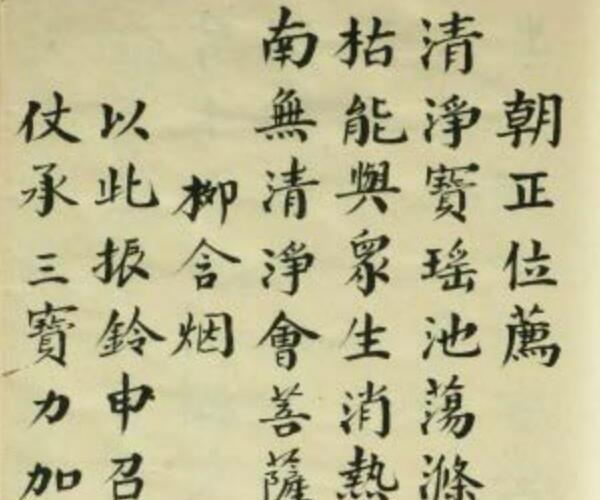 朝正位薦
清淨寶瑶池蕩滌
枯能與眾生消熱
南無清淨會菩薩
柳含烟
以此振鈴申召
仗承三寶力加